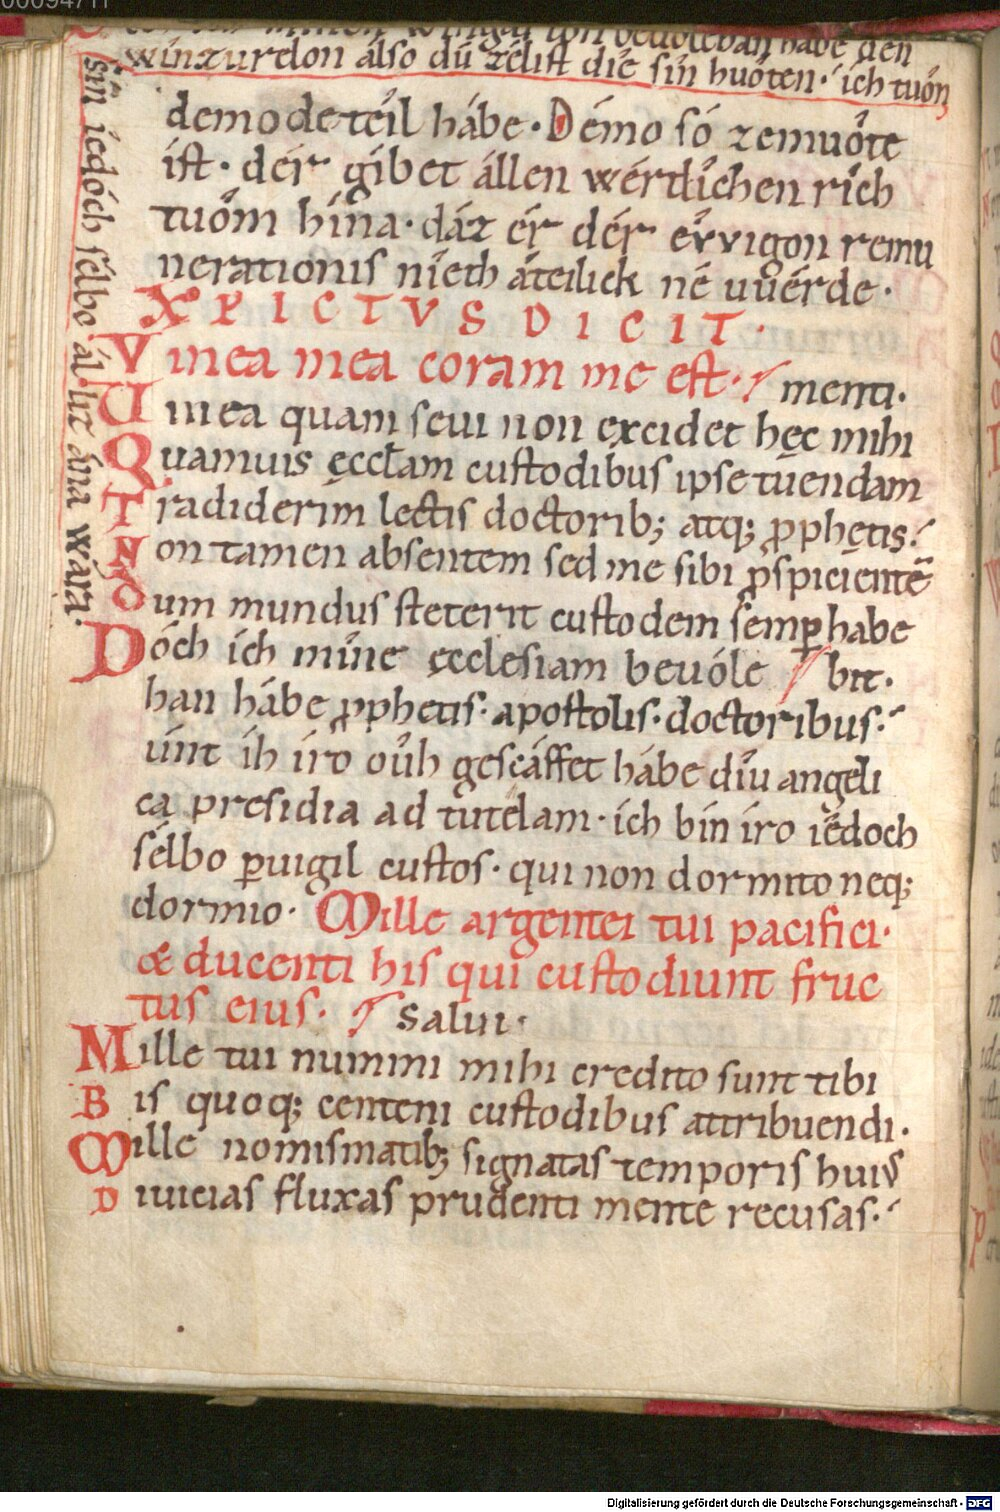 00094711
habe den
winzurelon álso dû zélist die sin huôten· ich tuôn
sin iedóch sélbo ál·liz ána wára·
demo de téil hábe· Démo só zemuôte
ist· dér gíbet állen wértlichen rîch
tuôm hína· dáz ér dér evvigon remu
nerationis nieth áteilick né uuérde·
XPICTVS DICIT·
Vinea mea coram me est· menti·
Uinea quam seui non excidet hęc mihi
Quamuis ęcctam custodibus ipse tuendam
Tradiderim lectis doctorib; atq; ꝓphetis·
Non tamen absentem sed me sibi ꝓspicientē
Dum mundus steterit custodem semꝑ habe
Dóch ich mîne ęcclesiam beuóle bit·
han hábe ꝓphetis· apostolis· doctoribus·
únt ih iro oûh gescáffet hábe dîu angeli
cą presidia ad tutelam· ich bin iro iedoch
sélbo ꝑuigil custos· qui non dormito neq;
dormio· Mille argentei tui pacifici·
& ducenti his qui custodiunt fruc
tus eius· Salui·
Mille tui nummi mihi credito sunt tibi
Bis quoq; centeni custodibus attribuendi·
Mille nomismatib; signatas temporis huiꝰ
Diuicias fluxas prudenti mente recusas·
Digitalisierung gefördert durch die Deutsche Forschungsgemeinschaft - DFG